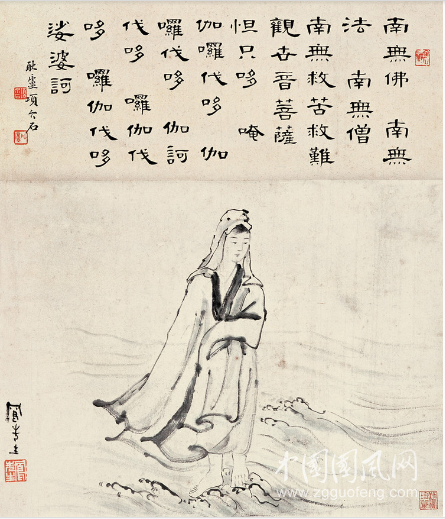 南無佛　南無
法　南無僧
南無救苦救難
觀世音菩薩
怛只哆　唵
伽囉伐哆　伽
囉伐哆　伽訶
伐哆　囉伽伐
哆　囉伽伐哆
娑婆訶
中国国风网
www.zgguofeng.com